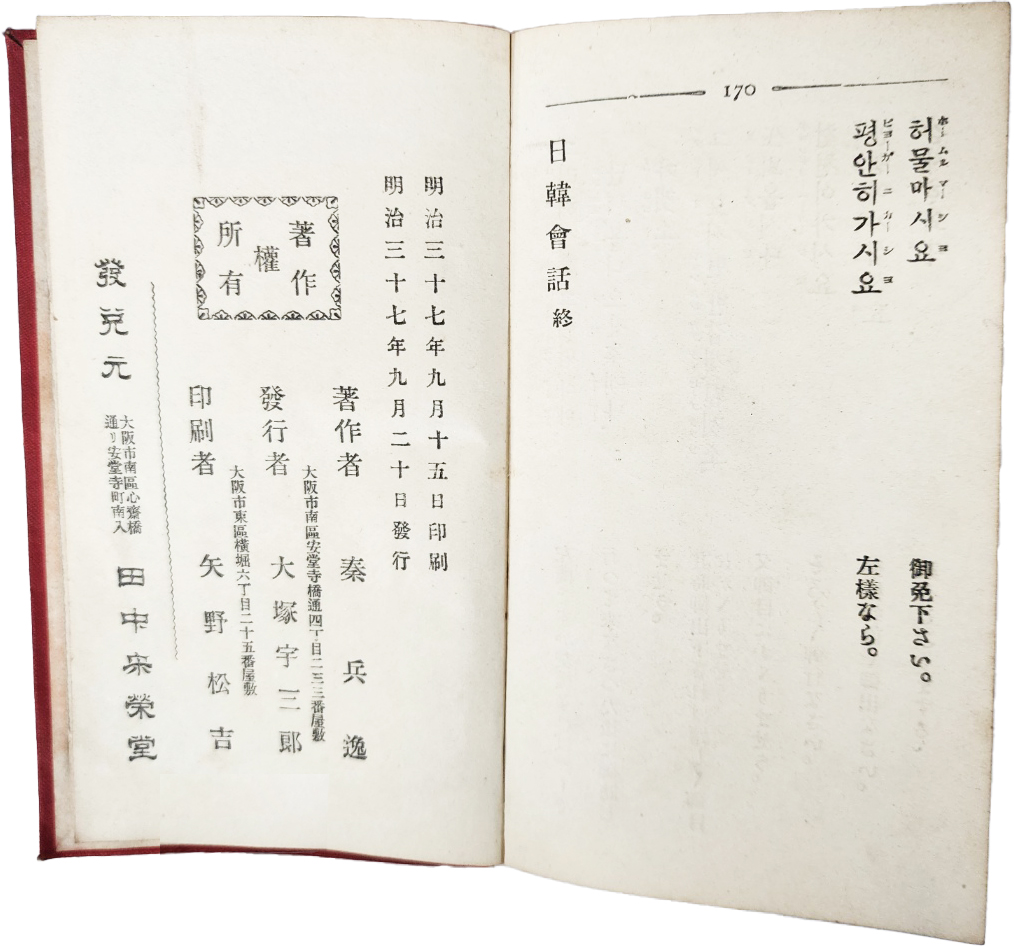 170
허물마시요
ホームルマーシヨ
御免下さい。
평안히가시요
ピヨーガーニカーシヨ
左樣なら。
日韓會話終
明治三十七年九月十五日印刷
明治三十七年九月二十日發行
著作權所有
著作者 秦兵逸
大阪市南區安堂寺橋通四丁目二三三番屋敷
發行者 大塚宇三郎
大阪市東區橫堀六丁目二十五番屋敷
印刷者 矢野松吉
發兌元
大阪市南區心齋橋
通リ安堂寺町南入
田中宋榮堂